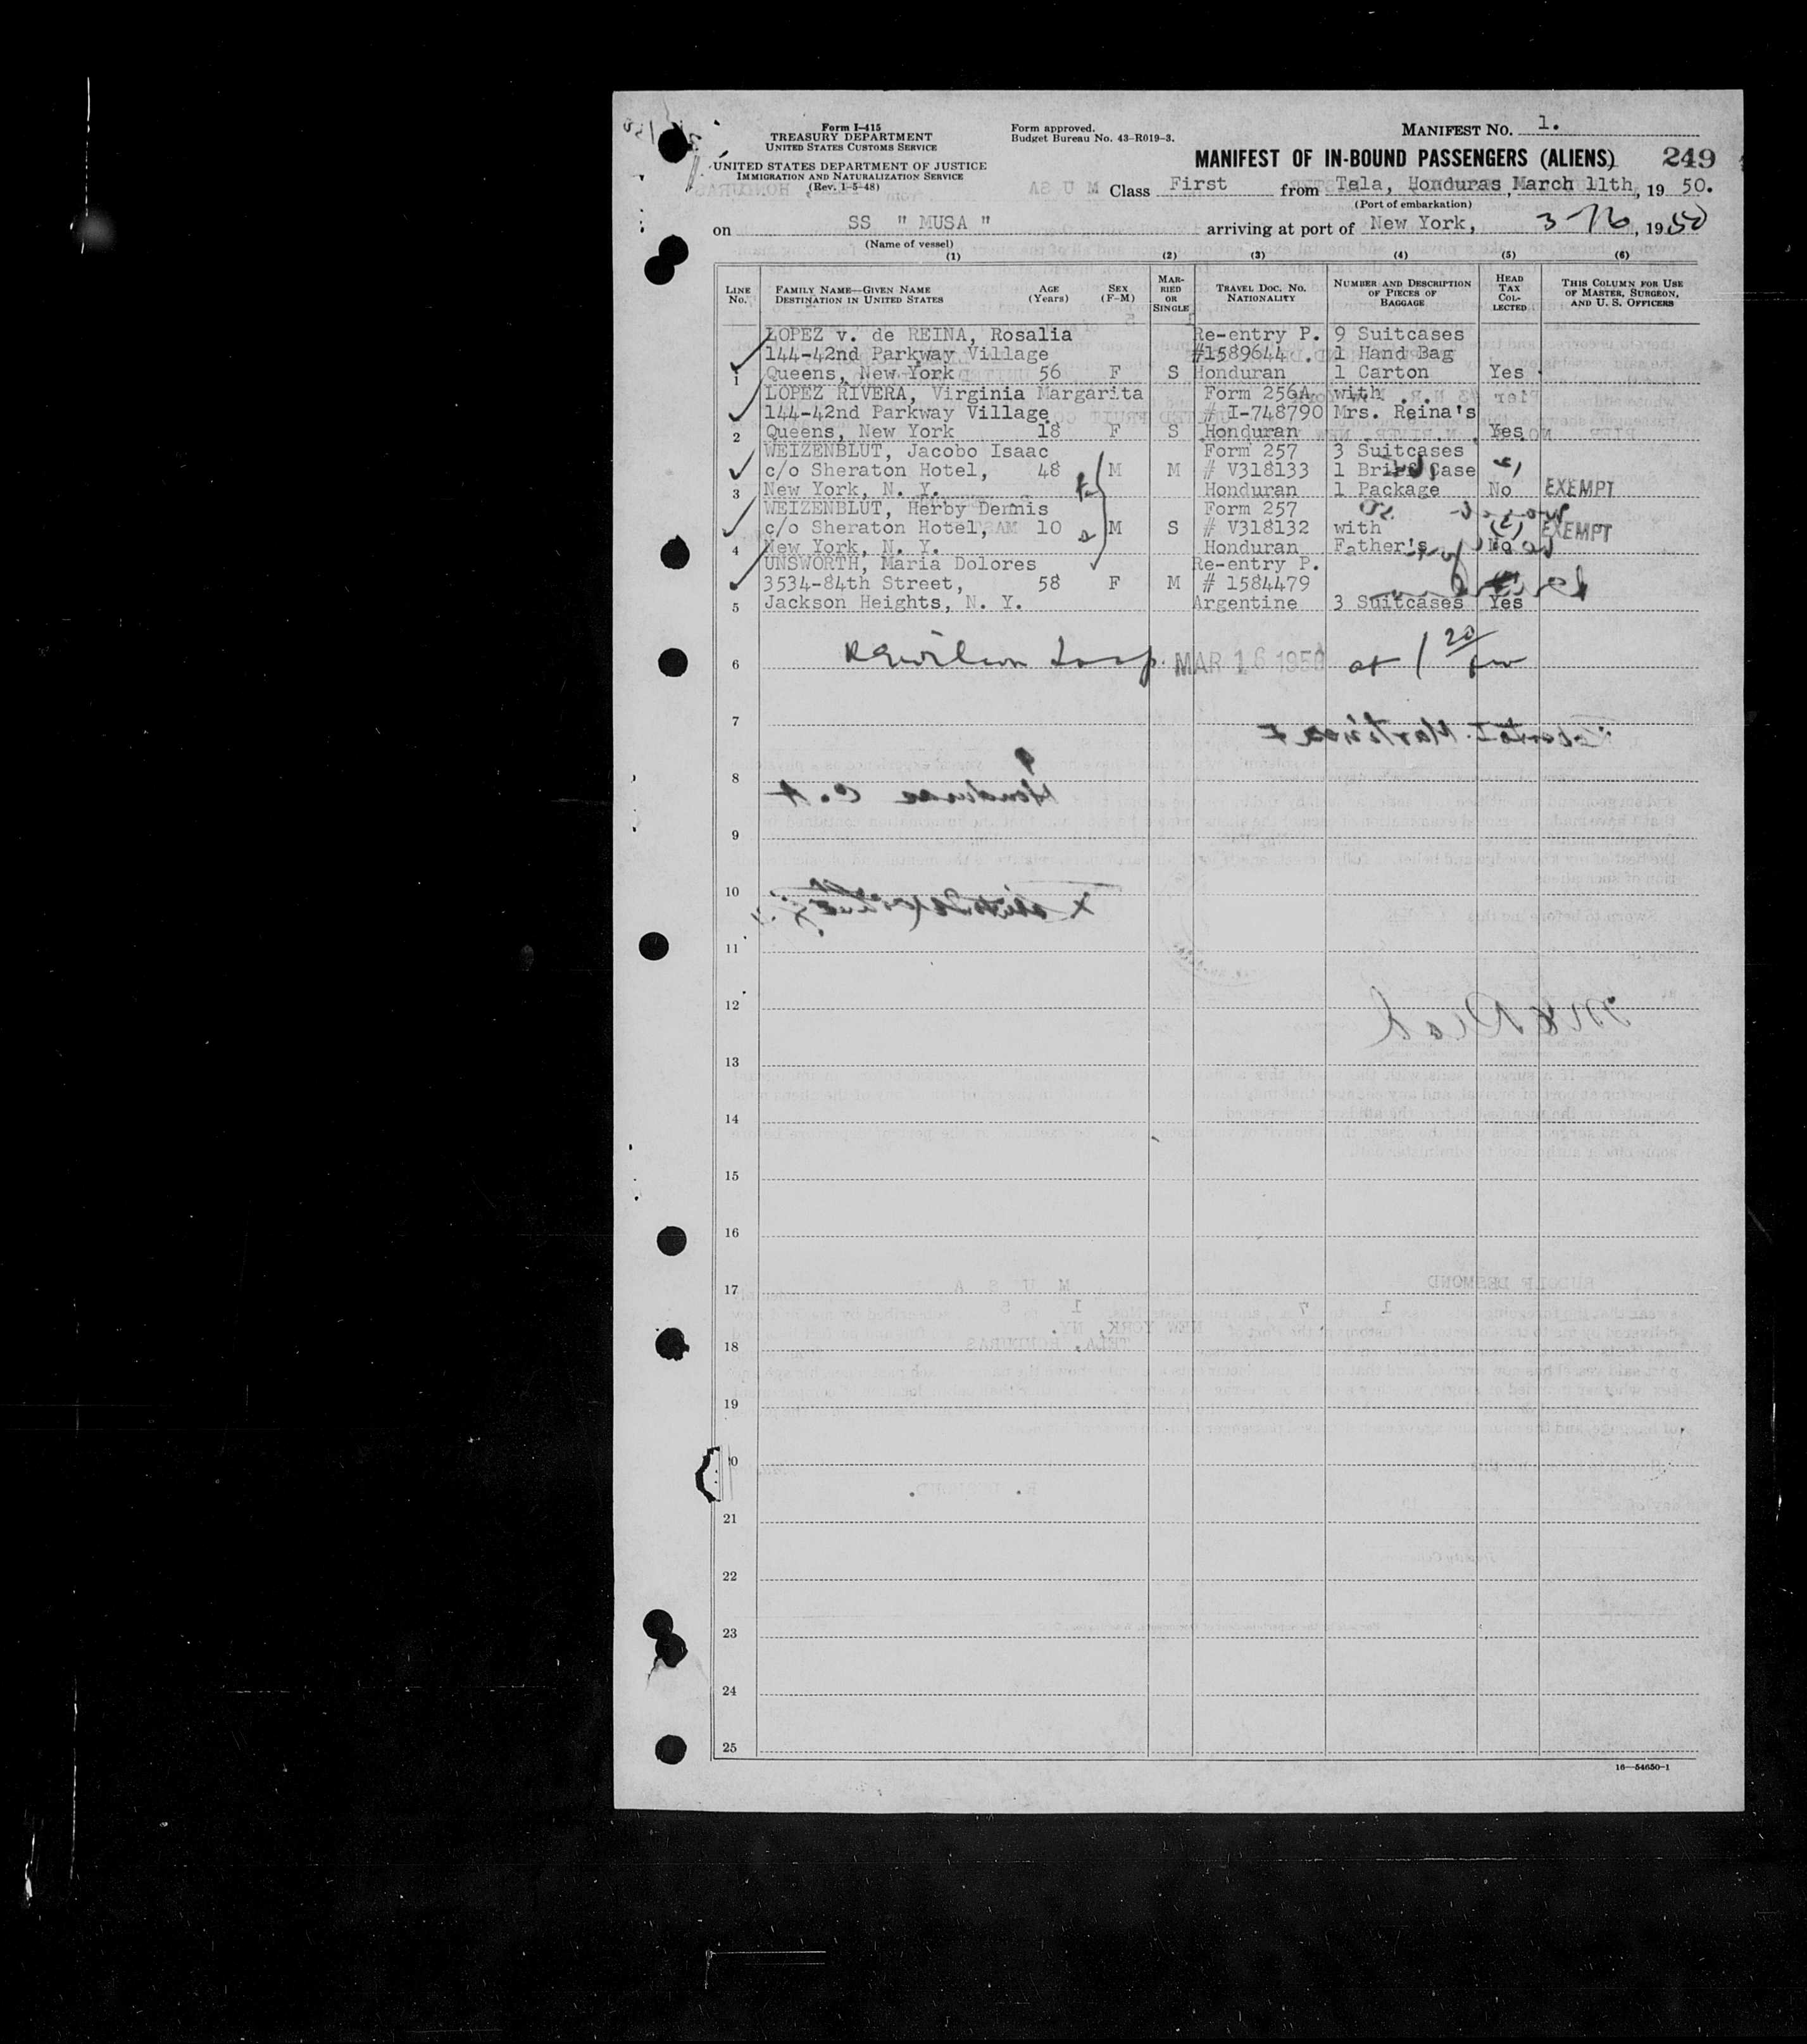 Form I-415
TREASURY DEPARTMENT
UNITED STATES CUSTOMS SERVICE
UNITED STATES DEPARTMENT OF JUSTICE
IMMIGRATION AND NATURALIZATION SERVICE
(Rev. 1-5-48)
Form approved.
Budget Bureau No. 43-R019-3.
MANIFEST NO. 1.
MANIFEST OF IN-BOUND PASSENGERS (ALIENS) 249
Class First from Tela, Honduras, March 11th, 19 50.
(Port of embarkation)
on SS " MUSA " arriving at port of New York, 3-16, 1950
(Name of vessel)
(1) (2) (3) (4) (5) (6)
LINE No. FAMILY NAME—GIVEN NAME DESTINATION IN UNITED STATES AGE (Years) SEX (F-M) MARRIED OR SINGLE TRAVEL DOC. NO. NATIONALITY NUMBER AND DESCRIPTION OF PIECES OF BAGGAGE HEAD TAX COLLECTED THIS COLUMN FOR USE OF MASTER, SURGEON, AND U. S. OFFICERS
LOPEZ v. de REINA, Rosalia Re-entry P. 9 Suitcases
144-42nd Parkway Village #1589644 1 Hand Bag
1 Queens, New York 56 F S Honduran 1 Carton Yes
LOPEZ RIVERA, Virginia Margarita Form 256A with
144-42nd Parkway Village # I-748790 Mrs. Reina's
2 Queens, New York 18 F S Honduran Yes
WEIZENBLUT, Jacobo Isaac Form 257 3 Suitcases
c/o Sheraton Hotel, 48 M M # V318133 1 Brief Case
3 New York, N. Y. Honduran 1 Package No EXEMPT
WEIZENBLUT, Herby Dennis Form 257
c/o Sheraton Hotel, 10 M S # V318132 with EXEMPT
4 New York, N. Y. Honduran Father's No
UNSWORTH, Maria Dolores Re-entry P.
3534-84th Street, 58 F M # 1584479
5 Jackson Heights, N. Y. Argentine 3 Suitcases Yes
6 MAR 16 1950 at 1 20
7
8
9
10
11
12
13
14
15
16
17
18
19
20
21
22
23
24
25
16—54650-1